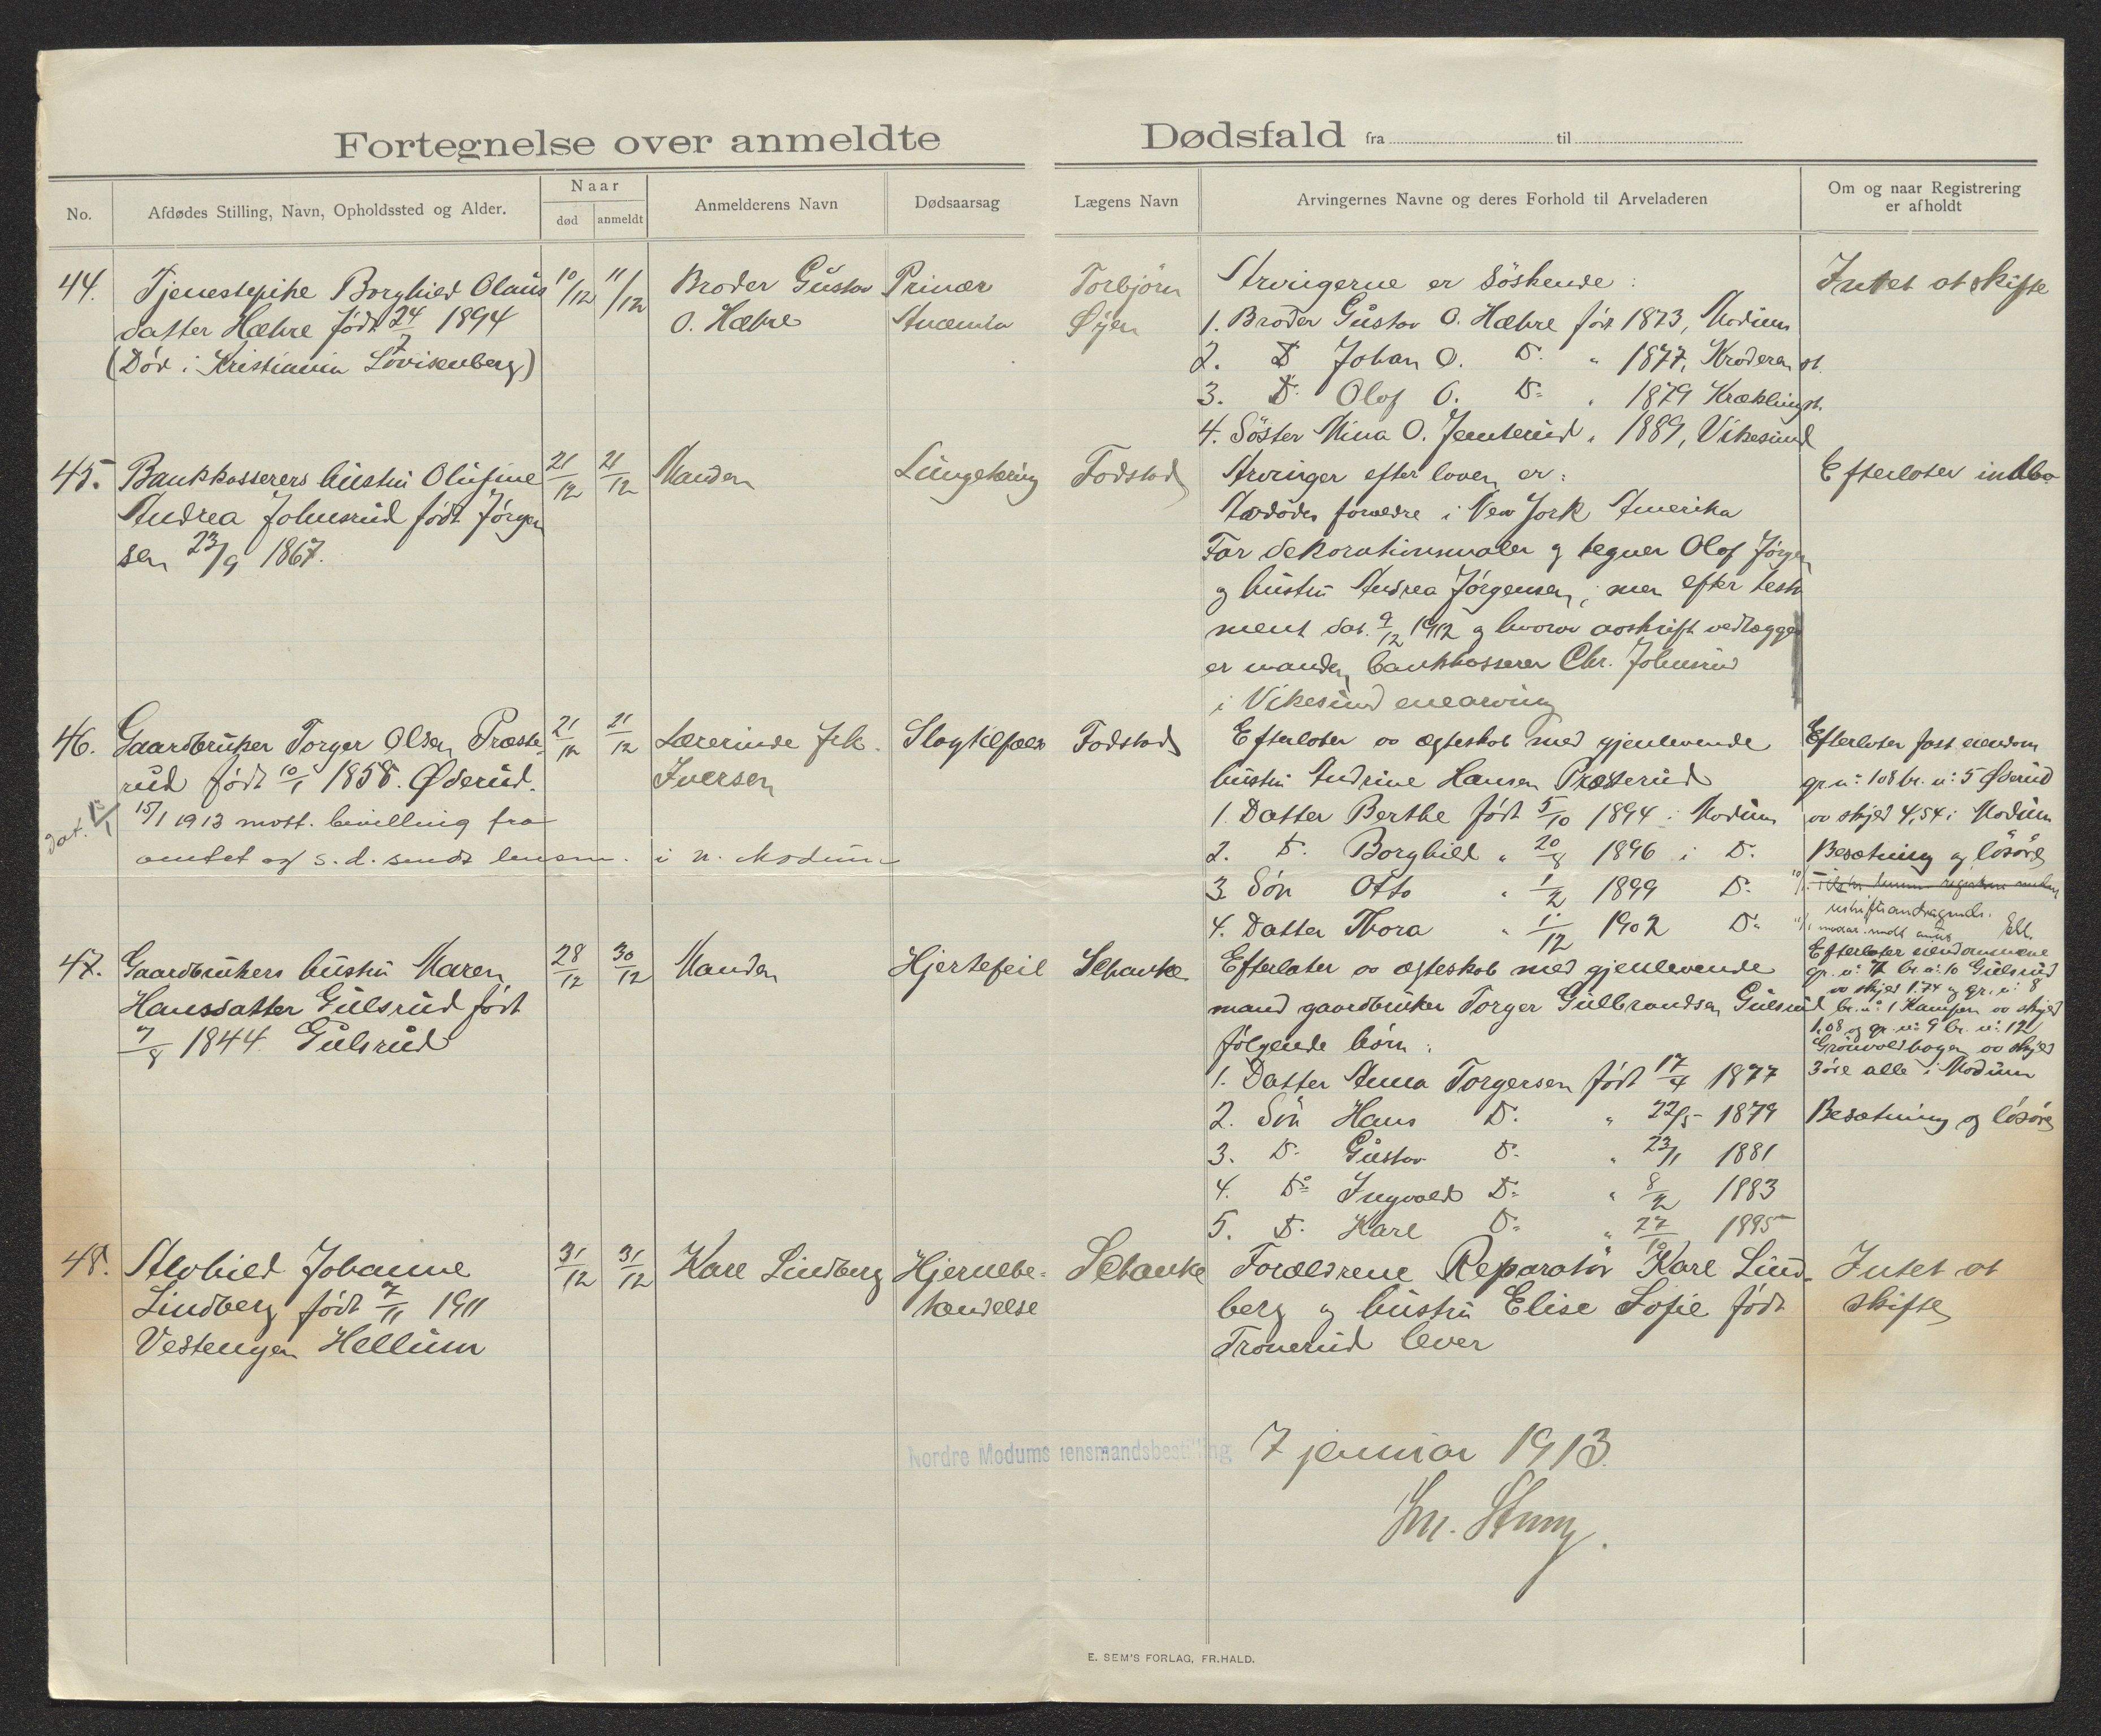 Fortegnelse over anmeldte Dødsfald fra til
No.
Afdødes Stilling, Navn, Opholdssted og Alder.
Naar
død
anmeldt
Anmelderens Navn
Dødsaarsag
Lægens Navn
Arvingernes Navne og deres Forhold til Arveladeren
Om og naar Registrering
er afholdt
44.
Tjenestepike Borghild Olaus
datter Hæhre født 24/7 1894
(Død i Kristiania Lovisenberg)
10/12
11/12
Broder Gustav
O. Hæhre
Primær
Anæmia
Torbjörn
Øyen
Arvingerne er Söskende:
1. Broder Gustav O. Hæhre født 1873, Modum
2. D Johan O. D. " 1877, Krøderen st.
3. D. Olof O. D. " 1879 Kræklingst.
4. Söster Mina O. Jemterud " 1889, Vikesund
Intet at skifte
45.
Bankkasserers hustru Olufine
Andrea Johnsrud født Jörgen
sen 23/9 1867.
21/12
21/12
Manden
Lungetæring
Fodstad
Arvinger efter loven er:
Avdødes forældre i New York Amerika
Far dekorationsmaler og tegner Olof Jørgen
og hustru Andrea Jørgensen; men efter testa
ment dat. 9/12 1912 og hvorav avskrift vedlægges
er manden bankkasserer Chr. Johnsrud
i Vikesund enearving
Efterlater indbo
46.
Gaardbruker Torger Olsen Præste-
rud født 10/1 1858. Øderud.
15/1 1913 mott. bevilling fra
amtet og s. d. sendt lensm. i n. Modum
dat. 13/1
21/12
21/12
Lærerinde Joh.
Iversen
Slagtilfælde
Fodstad
Efterlater av ægteskab med gjenlevende
hustru Andrine Hansen Præsterud
1. Datter Berthe født 5/10 1894 i Modum
2. D. Borghild " 20/8 1896 i D.
3. Søn Otto " 1/2 1899 D.
4. Datter Thora " 1/12 1902 D.
Efterlater fast eiendom
gr. n: 108 br. n: 5 Øderud
av skyld 4,54 i Modum
Besætning og løsøre
47.
Gaardbrukers hustru Maren
Hansdatter Gulsrud født
7/8 1844. Gulsrud
28/12
30/12
Manden
Hjertefeil
Schanke
Efterlater av ægteskab med gjenlevende
mand gaardbruker Torger Gulbrandsen Gulsrud
følgende børn:
1. Datter Anna Torgersen født 17/4 1877
2. Søn Hans D. " 22/5 1879
3. D. Gustav D. " 23/1 1881
4. D. Ingvald D. " 8/2 1883
5. D. Karl D. " 27/10 1895
Efterlater eiendommene
gr. n: 7 br. n: 10 Gulsrud
av skyld 1.74 og gr. n: 8
br. n: 1 Kampen av skyld
1,08 og gr. n: 9 br. n: 12
Grönvoldhagen av skyld
3 øre alle i Modum
Besætning og løsøre
48.
Alvhild Johanne
Lindberg født 7/11 1911
Vestengen Hellum
31/12
31/12
Karl Lindberg
Hjernebe-
tændelse
Schanke
Forældrene Reparatør Karl Lind-
berg og hustru Elise Sofie født
Tronerud lever
Intet at
skifte
Nordre Modums lensmandsbestilling 7 januar 1913.
E. SEM'S FORLAG, FR.HALD.